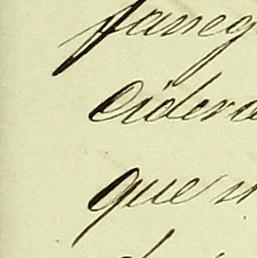 faneg
cidera
que n